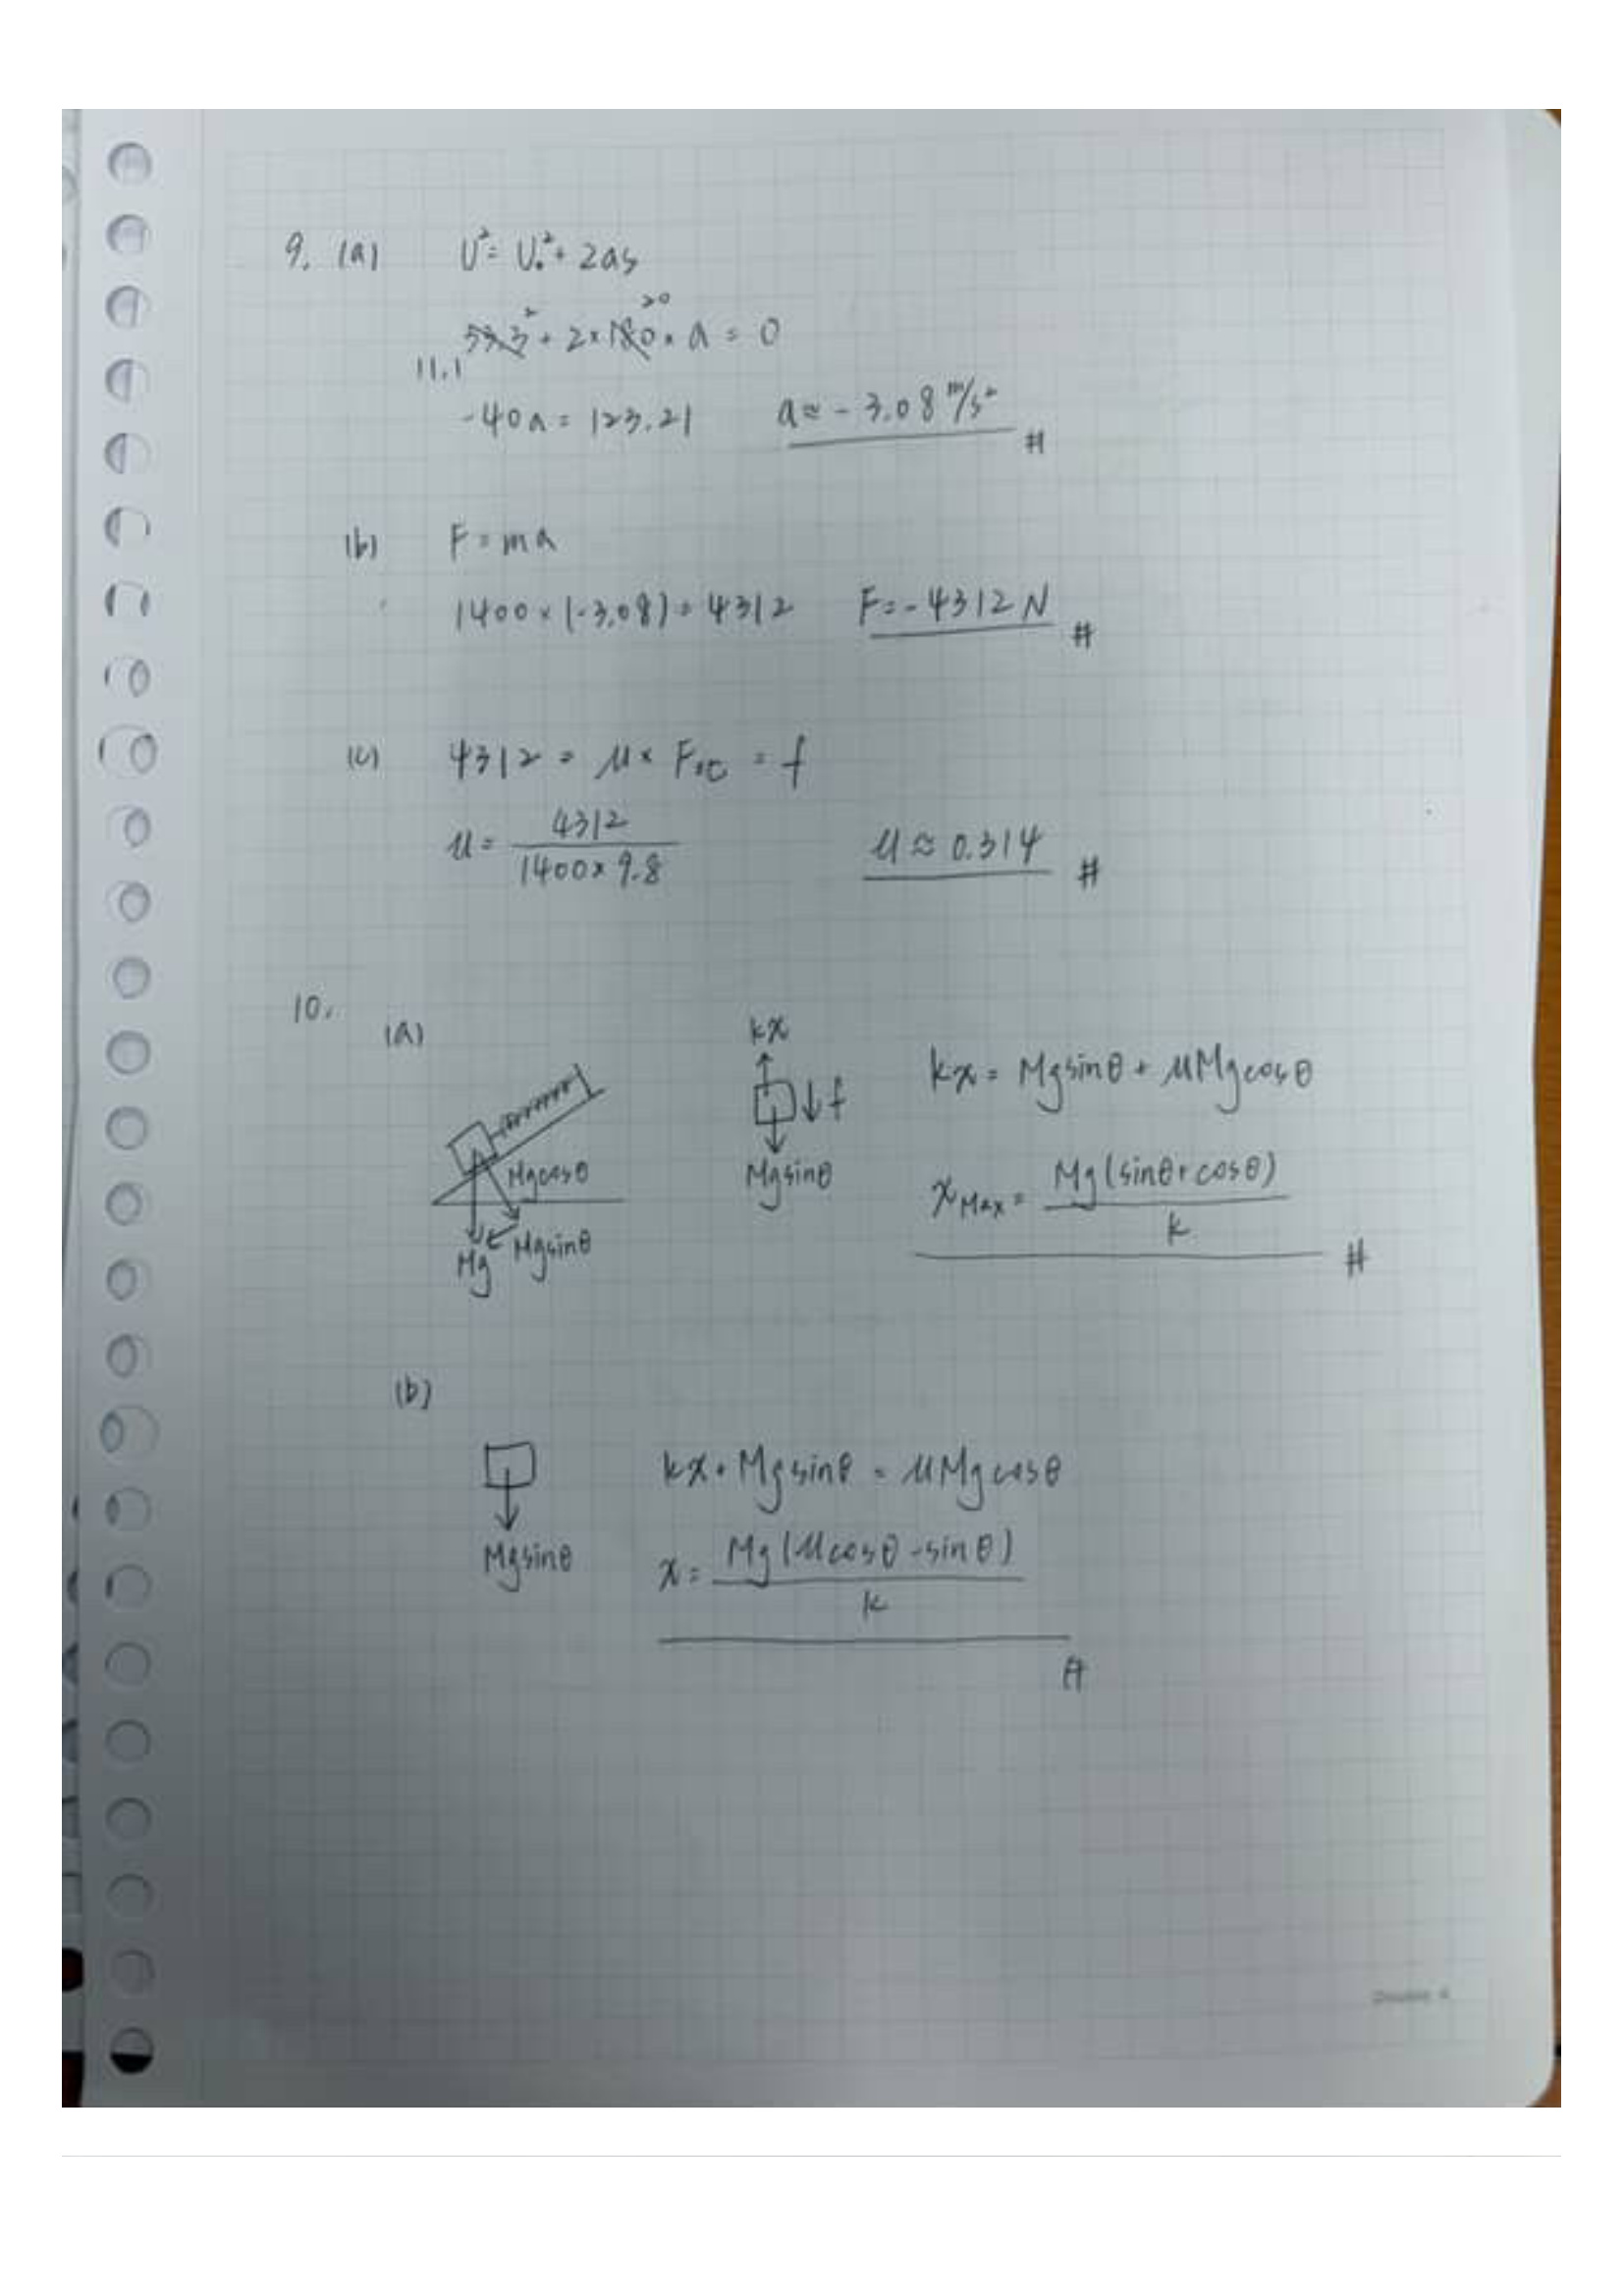 9. (a) V² = V₀² + 2as
20
53.3² + 2×180×a = 0
11.1
-40a = 123.21 a ≈ -3.08 m/s² #
(b) F = ma
1400×(-3.08) = 4312 F = -4312 N #
(c) 4312 = μ× = f
μ = 4312 / 1400×9.8 μ ≈ 0.314 #
10.
(a)
kx
f
Mgsinθ
Mgcosθ
Mg
Mgsinθ
kx = Mgsinθ + μMgcosθ
x Max = Mg(sinθ+cosθ) / k #
(b)
Mgsinθ
kx + Mgsinθ = μMgcosθ
x = Mg(μcosθ - sinθ) / k
#